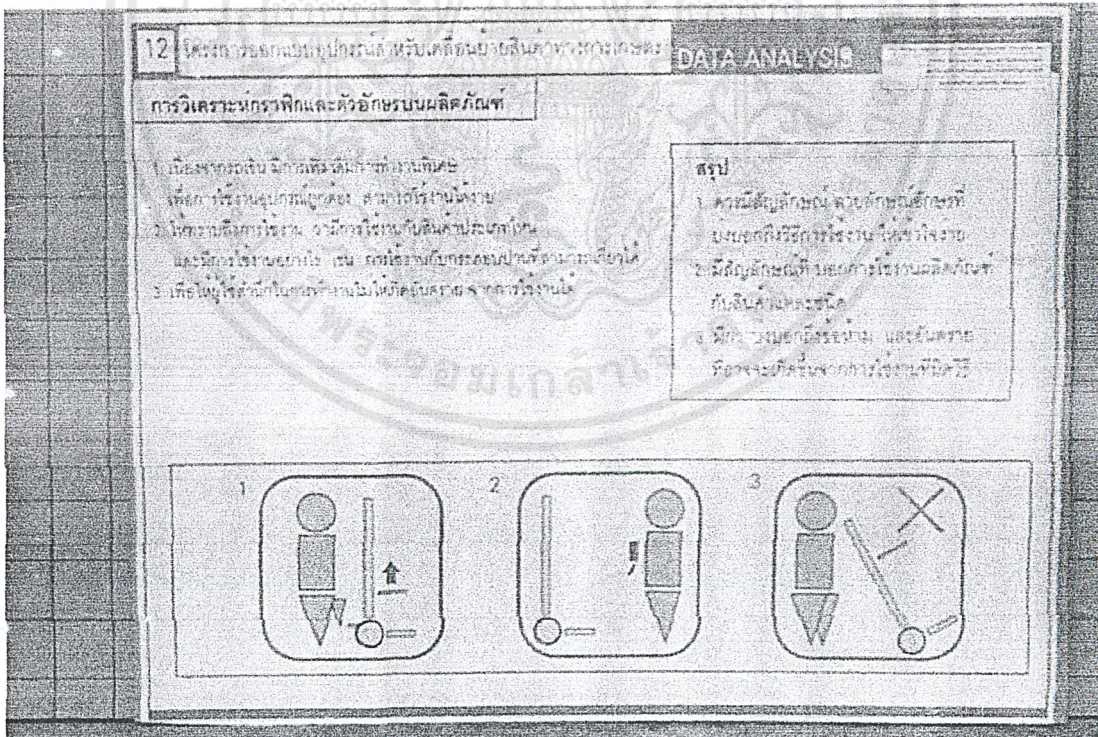 12 โครงการออกแบบอุปกรณ์สำหรับเคลื่อนย้ายสินค้าทางการเกษตร
DATA ANALYSIS
การวิเคราะห์กราฟิกและตัวอักษรบนผลิตภัณฑ์
1. เนื่องจากรถเข็น มีการเพิ่มเติมการทำงานพิเศษ
เพื่อการใช้งานอุปกรณ์ถูกต้อง สามารถใช้งานได้ง่าย
2. ให้ทราบถึงการใช้งาน ว่ามีการใช้งานกับสินค้าประเภทไหน
และมีการใช้งานอย่างไร เช่น การใช้งานกับกระสอบป่านที่สามารถเกี่ยวได้
3. เพื่อให้ผู้ใช้สำนึกในการทำงานไม่ให้เกิดอันตราย จากการใช้งานได้
สรุป
1. ควรมีสัญลักษณ์ ตัวอักษรที่
บ่งบอกถึงวิธีการใช้งาน ให้เข้าใจง่าย
2. มีสัญลักษณ์ที่ บอกการใช้งานผลิตภัณฑ์
กับสินค้าแต่ละชนิด
3. มีการบ่งบอกถึงข้อห้าม และอันตราย
ที่อาจจะเกิดขึ้นจากการใช้งานที่ผิดวิธี
1
2
3
พระจอมเกล้าเจ้า